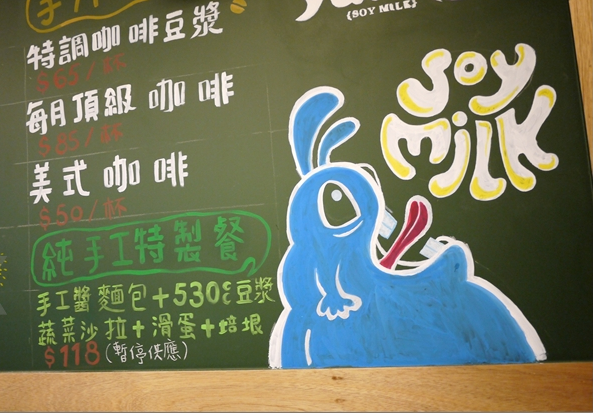 {SOY MILK}
特調咖啡豆漿
$65/杯
每月頂級咖啡
$85/杯
美式咖啡
$50/杯
純手工特製餐
手工醬麵包+530cc豆漿
蔬菜沙拉+滑蛋+培垠
$118(暫停供應)
Soy
milk